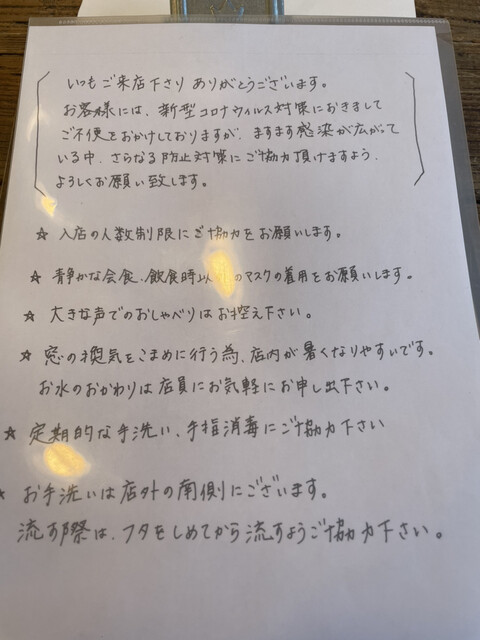 いつもご来店下さりありがとうございます。
お客様には、新型コロナウィルス対策におきまして
ご不便をおかけしておりますが、ますます感染が広がって
いる中、さらなる防止対策にご協力頂けますよう、
よろしくお願い致します。
☆ 入店の人数制限にご協力をお願いします。
☆ 静かな会食、飲食時以のマスクの着用をお願いします。
☆ 大きな声でのおしゃべりはお控え下さい。
☆ 窓の換気をこまめに行う為、店内が暑くなりやすいです。
お水のおかわりは店員にお気軽にお申し出下さい。
☆ 定期的な手洗い、手指消毒にご協力下さい
☆ お手洗いは店外の南側にございます。
流す際は、フタをしめてから流すようご協力下さい。